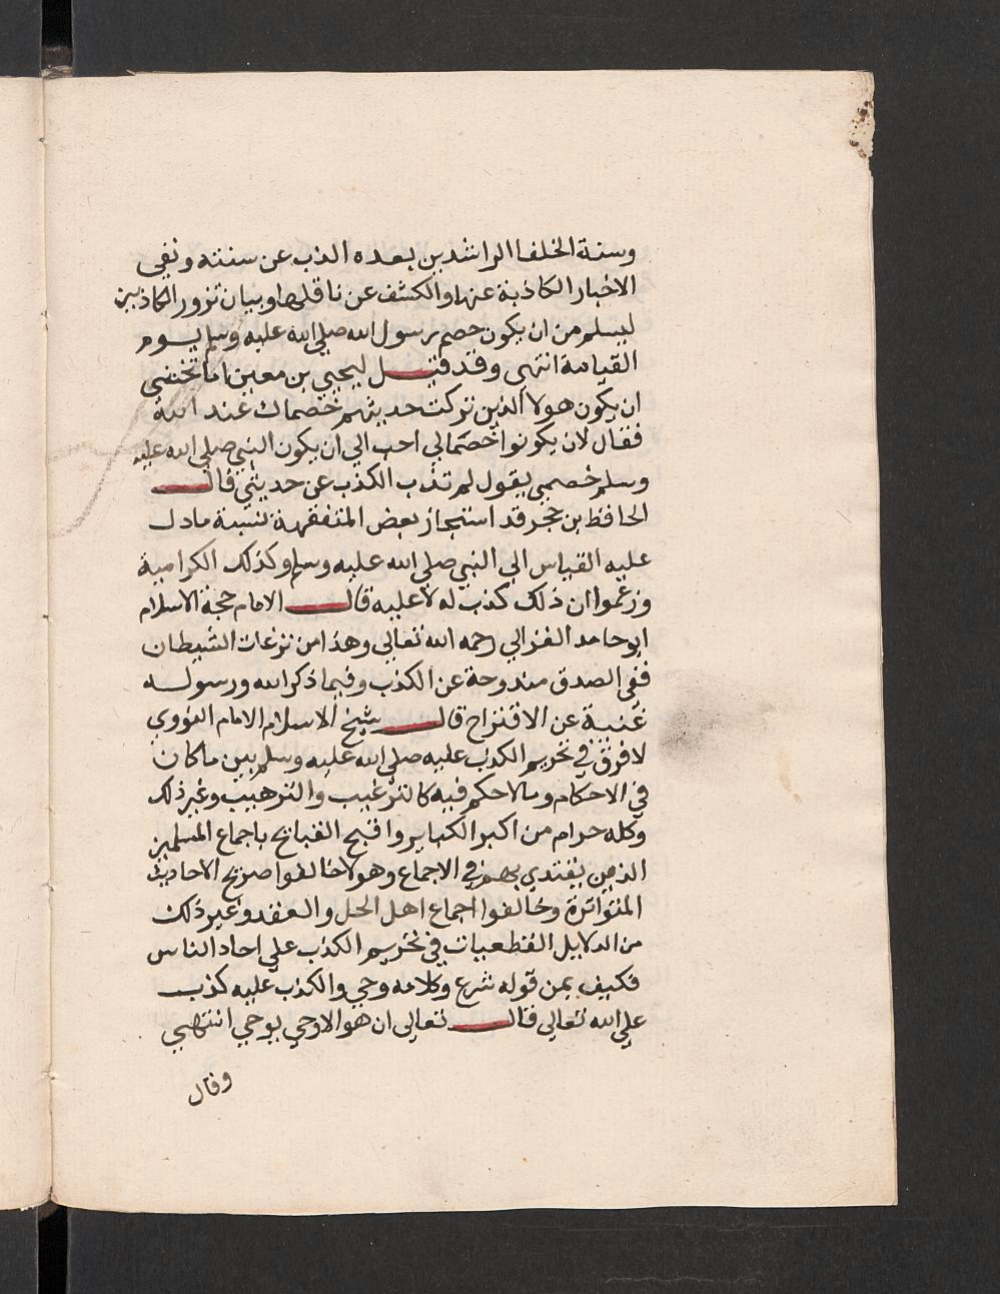 وسنة الخلفا الراشدين بعده الذب عن سنته ونفي
الاخبار الكاذبة عنها والكشف عن ناقلها وبيان تزوير الكاذبين
ليسلم من ان يكون خصم رسول الله صلي الله عليه وسلم يوم
القيامة انتهى وقد قيل ليحيي بن معين اما تخشي
ان يكون هولا الذين تركت حديثهم خصماك عند الله
فقال لان يكونوا خصمالي احب الي ان يكون النبي صلي الله عليه
وسلم خصمي يقول لم تذب الكذب عن حديثي قال
الحافظ بن حجر قد استجاز بعض المتفقهة نسبة ما دل
عليه القياس الي النبي صلي الله عليه وسلم وكذلك الكرامية
وزعموا ان ذلك كذب له لا عليه قال الامام حجة الاسلام
ابو حامد الغزالي رحمه الله تعالي وهذا من نزغات الشيطان
ففي الصدق مندوحة عن الكذب وفيما ذكر الله ورسوله
غنية عن الاقتراح قال شيخ الاسلام الامام النووي
لا فرق في تحريم الكذب عليه صلي الله عليه وسلم بين ما كان
في الاحكام وما لا حكم فيه كالترغيب والترهيب وغير ذلك
وكله حرام من اكبر الكباير واقبح القبائح باجماع المسلمين
الذين يقتدي بهم في الاجماع وهولا خالفوا صريح الاحاديث
المتواترة وخالفوا اجماع اهل الحل والعقد وغير ذلك
من الدلايل القطعيات في تحريم الكذب علي احاد الناس
فكيف بمن قوله شرع وكلامه وحي والكذب عليه كذب
علي الله تعالى قال تعالى ان هو الا وحي يوحي انتهي
وقال